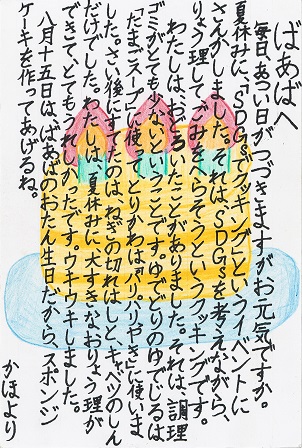 ばあばへ
毎日あつい日がつづきますがお元気ですか。
夏休みに、「SDGsでクッキング」というイベントに
さんかしました。それは、SDGsを考えながら、
りょう理してごみをへらそうというクッキングです。
わたしは、おどろいたことがありました。それは、調理
ゴミがとても少ないということです。ゆでどりのゆでじるは
「たまごスープ」に使い、とりかわは「パリパリやき」に使いま
した。さい後にすてたのは、ねぎの切れはしと、キャベツのしん
だけでした。わたしは、夏休みに大すきなおりょう理が
できて、とてもうれしかったです。ウキウキしました。
八月十五日は、ばあばのおたん生日だから、スポンジ
ケーキを作ってあげるね。
かほより